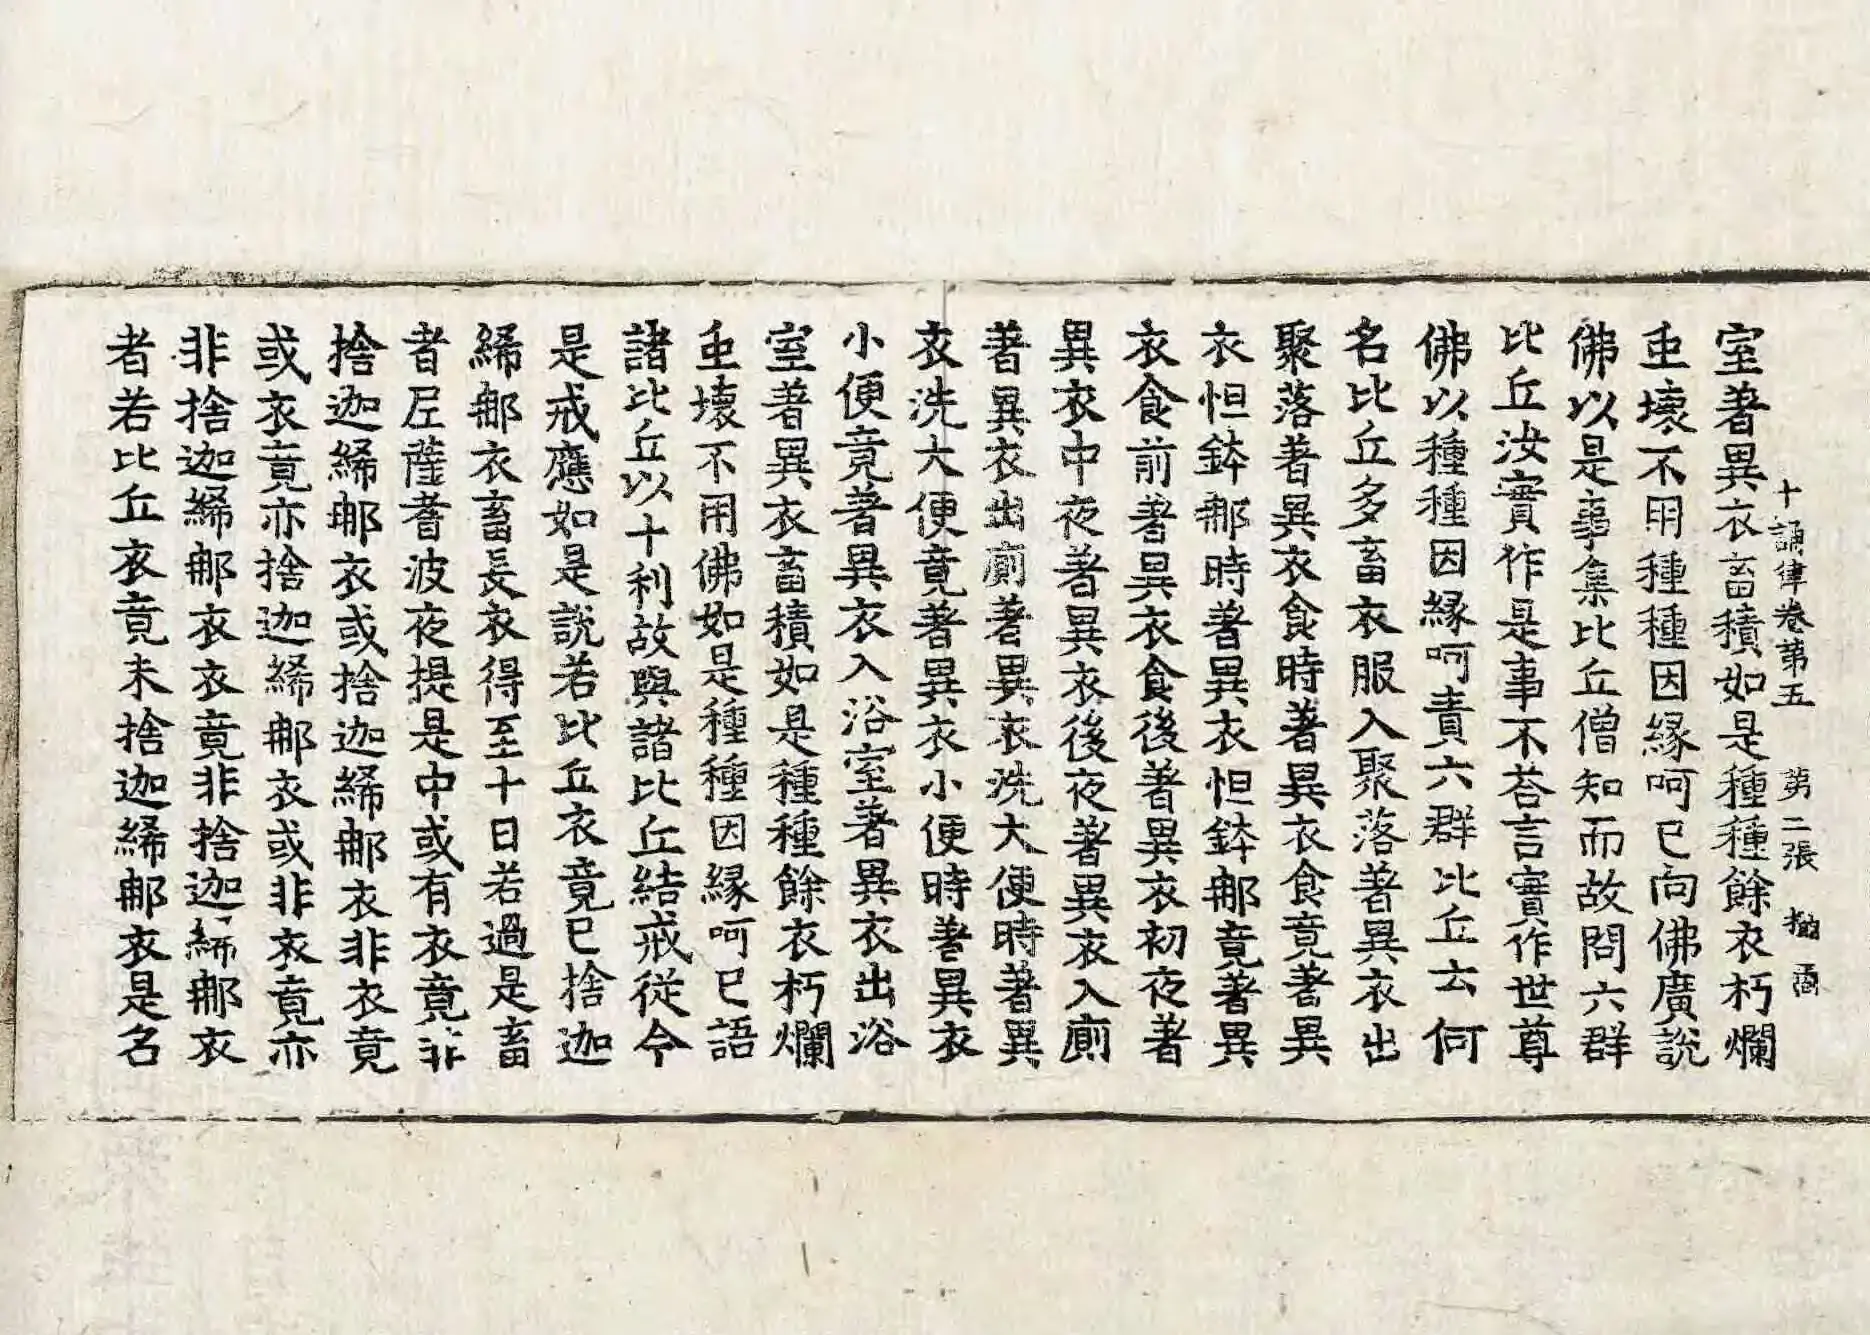 十誦律卷第五 第二張
室著異衣畜積如是種種餘衣朽爛
虫壞不用種種因緣呵已向佛廣說
佛以是事集比丘僧知而故問六群
比丘汝實作是事不荅言實作世尊
佛以種種因緣呵責六群比丘云何
名比丘多畜衣服入聚落著異衣出
聚落著異衣食時著異衣食竟著異
衣怛鉢那時著異衣怛鉢那竟著異
衣食前著異衣食後著異衣初夜著
異衣中夜著異衣後夜著異衣入廁
著異衣出廁著異衣洗大便時著異
衣洗大便竟著異衣小便時著異衣
小便竟著異衣入浴室著異衣出浴
室著異衣畜積如是種種餘衣朽爛
虫壞不用佛如是種種因緣呵已語
諸比丘以十利故與諸比丘結戒從今
是戒應如是說若比丘衣竟已捨迦
絺那衣畜長衣得至十日若過是畜
者尼薩耆波夜提是中或有衣竟非
捨迦絺那衣或捨迦絺那衣非衣竟
或衣竟亦捨迦絺那衣或非衣竟亦
非捨迦絺那衣衣竟非捨迦絺那衣
者若比丘衣竟未捨迦絺那衣是名